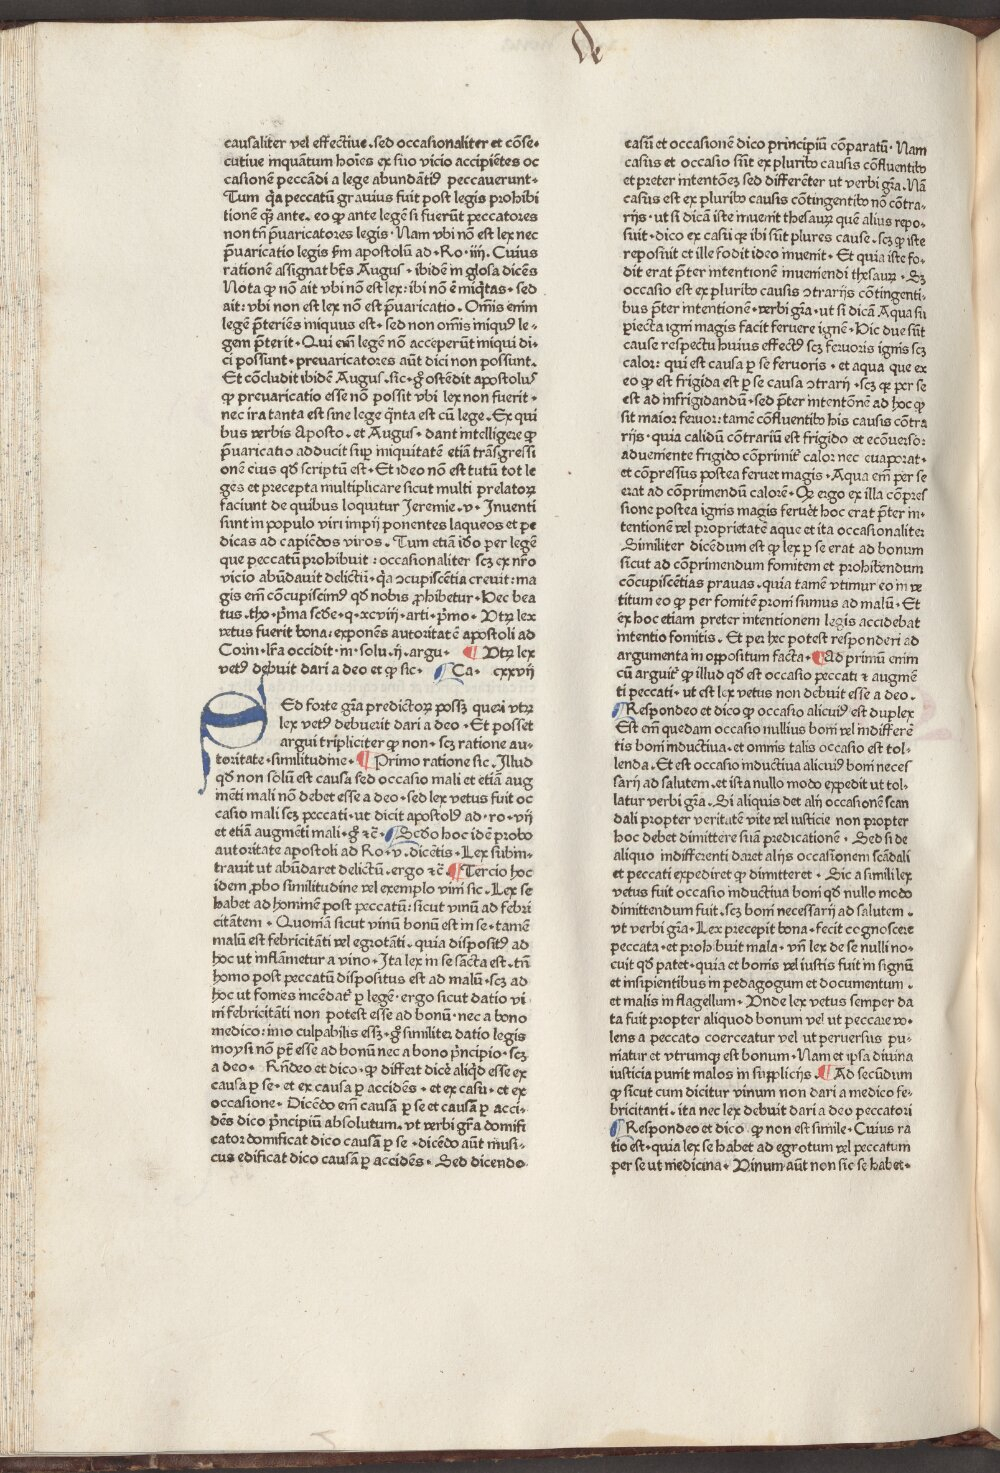 De
causaliter vel effectiue. sed occasionaliter et cōse-
cutiue inquātum hoīes ex suo vicio accipiētes oc
casionē peccādi a lege abundātiꝰ peccauerunt.
Tum qꝛa peccatū grauius fuit post legis prohibi
tionē qꝫ ante. eo ꝙ ante legē si fuerūt peccatores
non tñ p̄uaricatores legis. Nam vbi nō est lex nec
p̄uaricatio legis ẜm apostolū ad. Ro. iiij. Cuius
rationē assignat bt̄s Augus. ibidē in glosa dicēs
Nota ꝙ nō ait vbi nō est lex: ibi nō ē iniqͥtas. sed
ait: vbi non est lex nō est p̄uaricatio. Om̄is enim
legē p̄teriēs iniquus est. sed non om̄is iniquꝰ le-
gem p̄terit. Qui em̄ legē nō acceperūt iniqui di-
ci possunt. preuaricatores aūt dici non possunt.
Et cōcludit ibidē Augus. sic. g̊ ostēdit apostolus
ꝙ preuaricatio esse nō possit vbi lex non fuerit.
nec ira tanta est sine lege qͣnta est cū lege. Ex qui
bus verbis Aposto. et Augus. dant intelligere ꝙ
p̄uaricatio adducit suꝑ iniquitatē etiā trāsgressi
onē eius qḋ scriptū est. Et ideo nō est tutū tot le
ges et precepta multiplicare sicut multi prelatoꝝ
faciunt de quibus loquitur Jeremie. v. Inuenti
sunt in populo viri impij ponentes laqueos et pe
dicas ad capiēdos viros. Tum etiā iḋo per legē
que peccatū prohibuit: occasionaliter scꝫ ex nr̄o
vicio abūdauit delictū. qꝛa ↄcupiscētia creuit: ma
gis em̄ cōcupiscimꝰ qḋ nobis ꝓhibetur. Hec bea
tus. tho. p̄ma scḋe. q. xcviij. arti. p̄mo. Vtꝝ lex
vetus fuerit bona: exponēs autoritatē apostoli ad
Corin. lr̄a occidit. in. solu. ij. argu. ¶ Vtꝝ lex
vetꝰ debuit dari a deo et ꝙ sic. ¶ Ca. cxxvij
SEd forte gr̄a predictoꝝ possꝫ queri vtꝝ
lex vetꝰ debuerit dari a deo. Et posset
argui tripliciter ꝙ non. scꝫ ratione au-
toritate. similitudine. ¶ Primo ratione sic. Illud
qḋ non solū est causa sed occasio mali et etiā aug
mēti mali nō debet esse a deo. sed lex vetus fuit oc
casio mali scꝫ peccati. ut dicit apostolꝰ ad. ro. vij
et etiā augmēti mali. g̊ ⁊c̄. ¶ Scḋo hoc idē probo
autoritate apostoli ad Ro. v. dicētis. Lex subin-
trauit ut abūdaret delictū. ergo ⁊c̄. ¶ Tercio hoc
idem ꝓbo similitudine vel exemplo vini sic. Lex se
habet ad hominē post peccatū: sicut vinū ad febri
citātem. Quoniā sicut vinū bonū est in se. tamē
malū est febricitāti vel egrotāti. quia dispositꝰ ad
hoc ut inflāmetur a vino. Ita lex in se sācta est. tn̄
homo post peccatū dispositus est ad malū. scꝫ ad
hoc ut fomes incēdat̉ ꝑ legē. ergo sicut datio vi
ni febricitāti non potest esse ad bonū. nec a bono
medico: imo culpabilis essꝫ. g̊ similiter datio legis
moysi nō pt̄ esse ad bonū nec a bono p̄ncipio. scꝫ
a deo. Rn̄deo et dico. ꝙ differt dicē aliqͥd esse ex
causa ꝑ se. et ex causa ꝑ accidēs. et ex casu. et ex
occasione. Dicēdo em̄ causā ꝑ se et causā ꝑ acci-
dēs dico p̄ncipiū absolutum. vt verbi gr̄a domifi
cator domificat dico causā ꝑ se. dicēdo aūt musi-
cus edificat dico causā ꝑ accidēs. Sed dicendo
casū et occasionē dico principiū cōparatū. Nam
casus et occasio sūt ex pluribꝰ causis cōfluentibꝰ
et preter intentōeꝫ sed differēter ut verbi gr̄a. Nā
casus est ex pluribꝰ causis cōtingentibꝰ nō cōtra-
rijs. ut si dicā iste inuenit thesauꝝ quē alius repo-
suit. dico ex casu qꝛ ibi sūt plures cause. scꝫ ꝙ iste
reposuit et ille fodit ideo inuenit. Et quia iste fo-
dit erat p̄ter intentionē inueniendi thesauꝝ. Sꝫ
occasio est ex pluribꝰ causis ↄtrarijs cōtingenti-
bus p̄ter intentionē. verbi gr̄a. ut si dicā Aqua su
ꝑiecta igni magis facit feruere ignē. Hic due sūt
cause respectu huius effectꝰ scꝫ feruoris ignis scꝫ
calor: qui est causa ꝑ se feruoris. et aqua que ex
eo ꝙ est frigida est ꝑ se causa ↄtrarij. scꝫ ꝙ per se
est ad infrigidandū. sed p̄ter intentōnē ad hoc ꝙ
sit maior feruor: tamē cōfluentibꝰ his causis cōtra
rijs. quia calidū cōtrariū est frigido et ecōuerso:
adueniente frigido cōprimit̉ calor nec euaporat.
et cōpressus postea feruet magis. Aqua em̄ per se
erat ad cōprimendū calorē. Qꝫ ergo ex illa cōpres
sione postea ignis magis feruet hoc erat p̄ter in-
tentionē vel proprietatē aque et ita occasionaliter
Similiter dicēdum est ꝙ lex ꝑ se erat ad bonum
sicut ad cōprimendum fomitem et prohibendum
cōcupiscētias prauas. quia tamē vtimur eo in ve
titum eo ꝙ per fomitē proni sumus ad malū. Et
ex hoc etiam preter intentionem legis accidebat
intentio fomitis. Et per hec potest responderi ad
argumenta in oppositum facta. ¶ Ad primū enim
cū arguit̉ ꝙ illud qḋ est occasio peccati ⁊ augmē
ti peccati. ut est lex vetus non debuit esse a deo.
¶ Respondeo et dico ꝙ occasio alicuiꝰ est duplex
Est em̄ quedam occasio nullius boni vel indifferē
tis boni inductiua. et omnis talis occasio est tol-
lenda. Et est occasio inductiua alicuiꝰ boni neces
sarij ad salutem. et ista nullo modo expedit ut tol-
latur verbi gr̄a. Si aliquis det alij occasionē scan
dali propter veritatē vite vel iusticie non propter
hoc debet dimittere suā predicationē. Sed si de
aliquo indifferenti daret alijs occasionem scādali
et peccati expediret ꝙ dimitteret. Sic a simili lex
vetus fuit occasio inductiua boni qḋ nullo modo
dimittendum fuit. scꝫ boni necessarij ad salutem.
vt verbi gr̄a. Lex precepit bona. fecit cognoscere
peccata. et prohibuit mala. vn̄ lex de se nulli no-
cuit qḋ patet. quia et bonis vel iustis fuit in signū
et insipientibus in pedagogum et documentum.
et malis in flagellum. Vnde lex vetus semper da
ta fuit propter aliquod bonum vel ut peccare vo-
lens a peccato coerceatur vel ut peruersus pu-
niatur et vtrumqꝫ est bonum. Nam et ipsa diuina
iusticia punit malos in supplicijs. ¶ Ad secūdum
ꝙ sicut cum dicitur vinum non dari a medico fe-
bricitanti. ita nec lex debuit dari a deo peccatori
¶ Respondeo et dico ꝙ non est simile. Cuius ra
tio est. quia lex se habet ad egrotum vel peccatum
per se ut medicina. Vinum aūt non sic se habet.